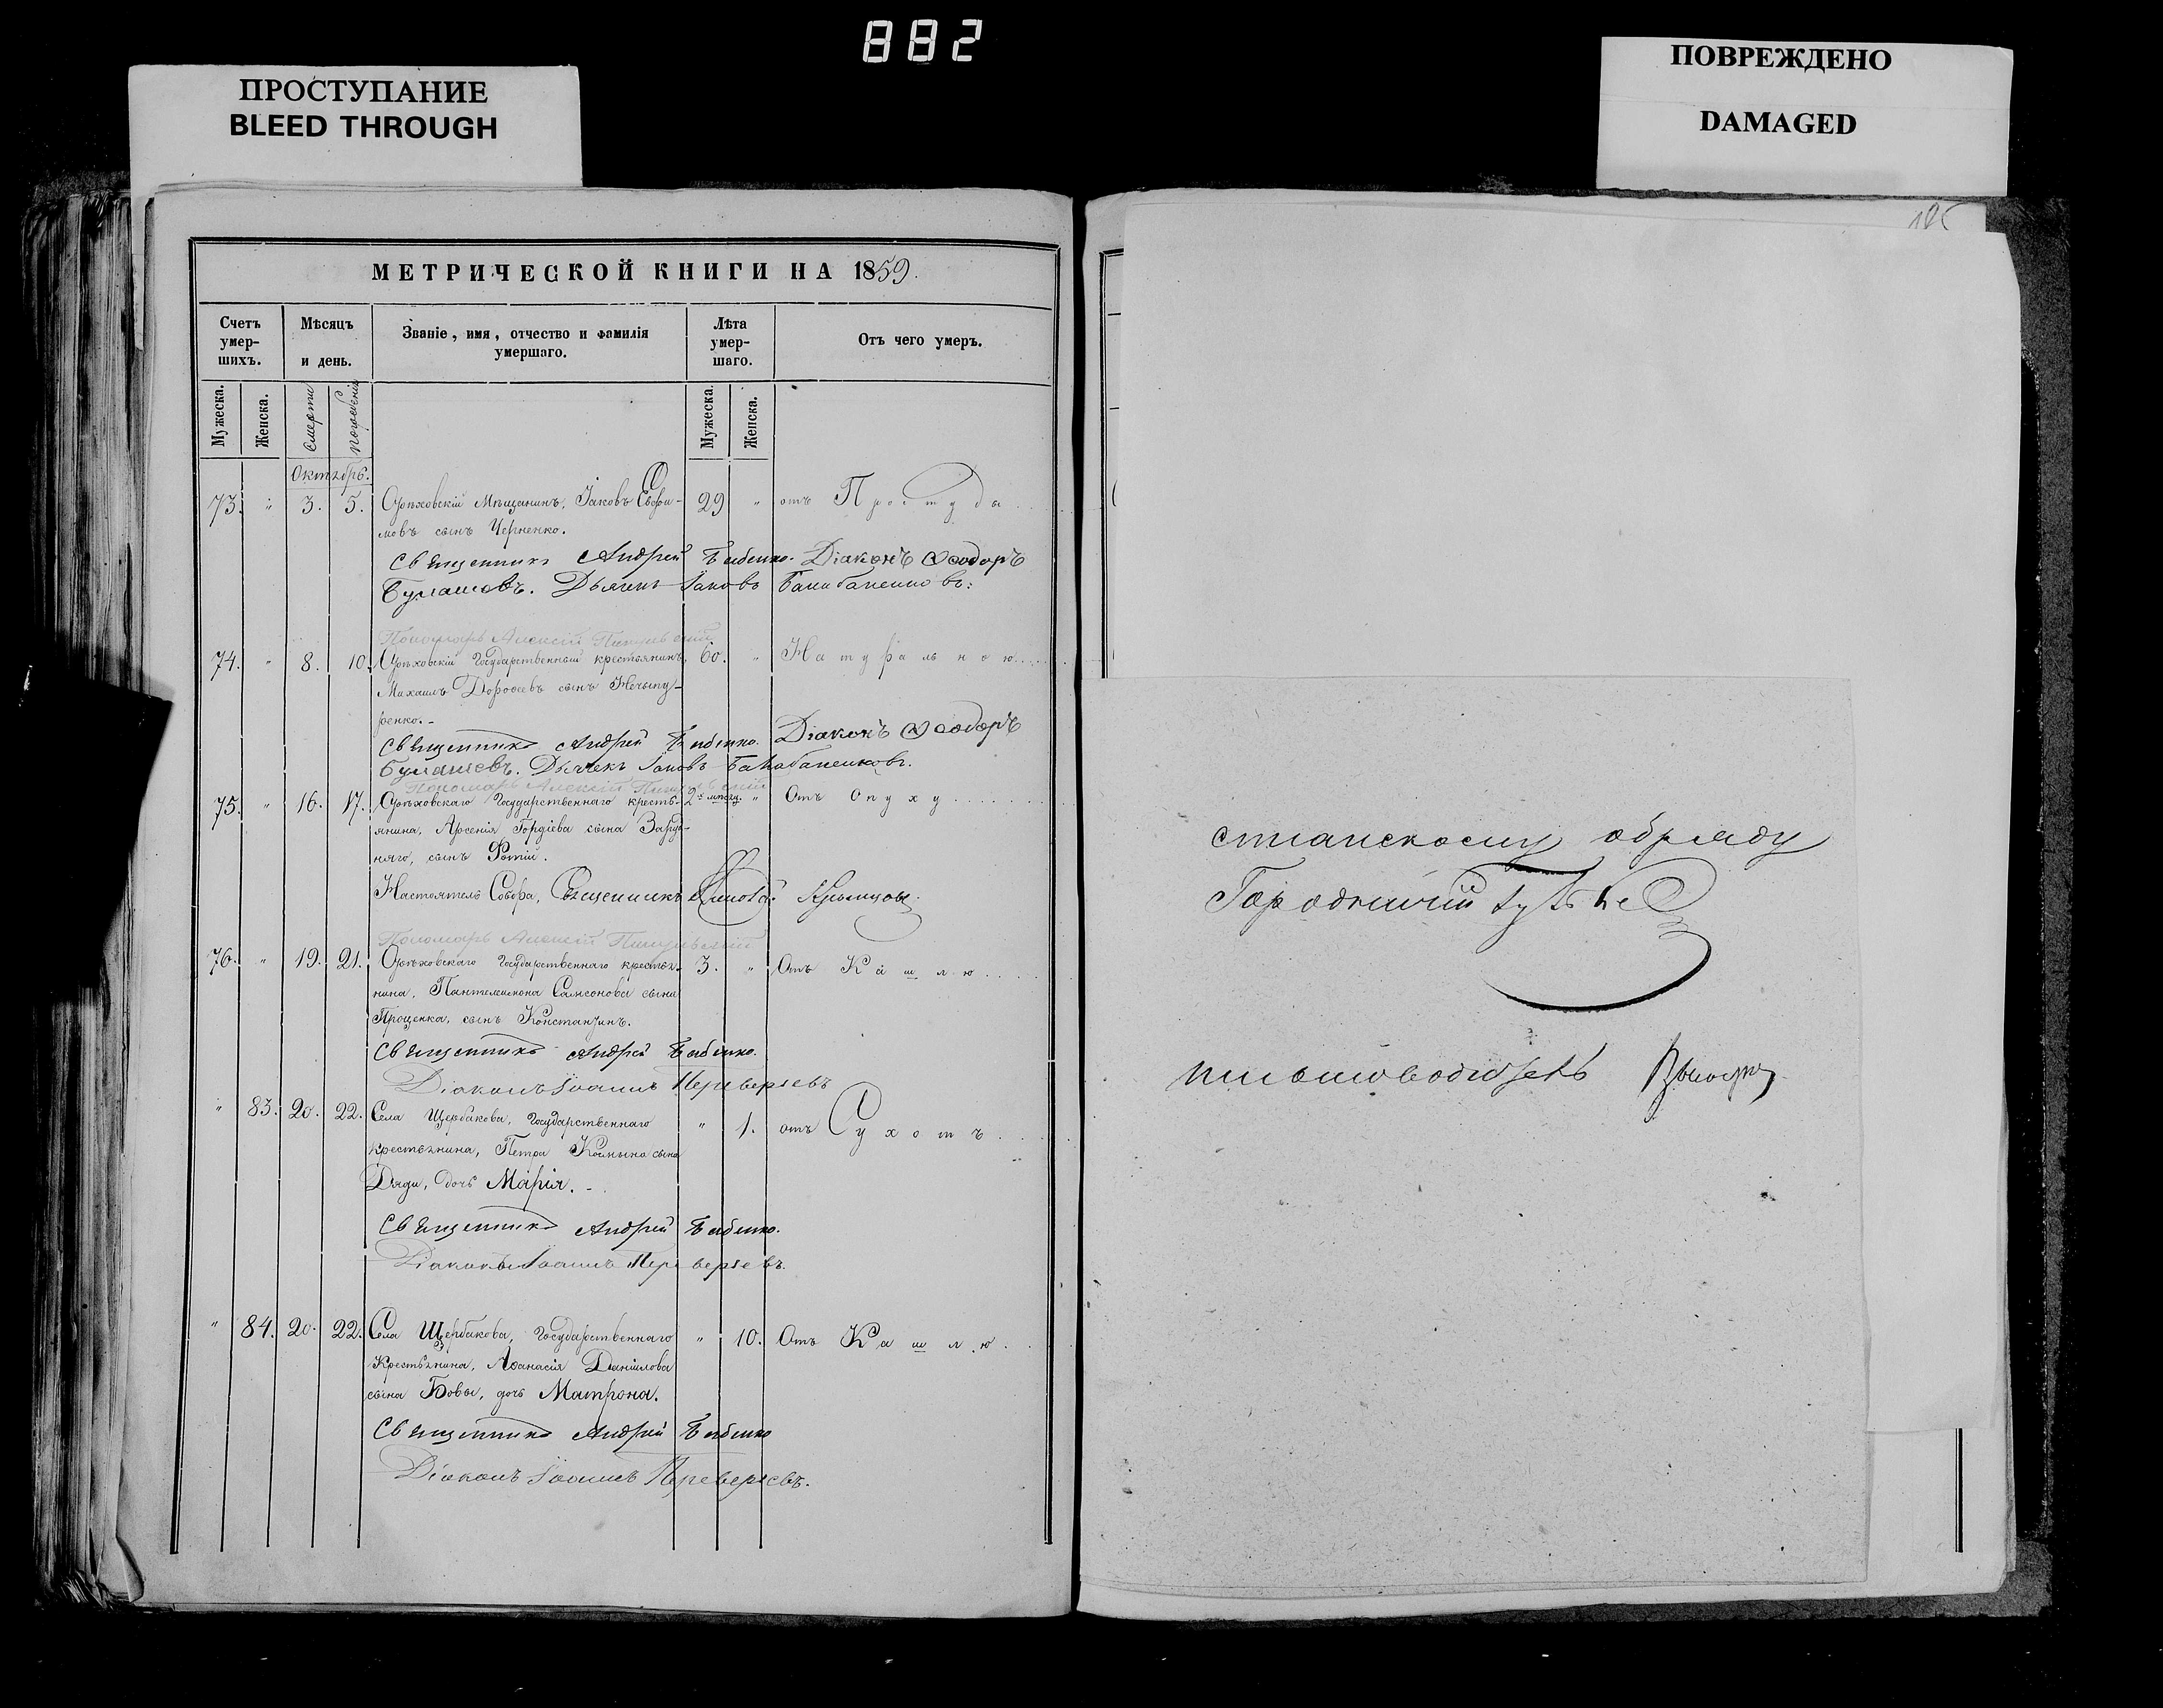 882
ПРОСТУПАНИЕ
BLEED THROUGH
ПОВРЕЖДЕНО
DAMAGED
МЕТРИЧЕСКОЙ КНИГИ НА 1859.
Счетъ умер-шихъ.
Мѣсяцъ и день.
Званіе, имя, отчество и фамилія умершаго.
Лѣта умер-шаго.
Отъ чего умеръ.
Мужеска.
Женска.
смерти
погребенія
Мужеска.
Женска.
Октябрь.
73. " 3. 5. Орѣховскій Мѣщанинъ, Іаковъ Евфи- 29 " отъ Простуда
мовъ сынъ Черненко.
Священникъ Андрей Бабенко. Діаконъ Ѳеодоръ
Булашевъ. Дьячекъ Іаковъ Балабаненковъ:
Пономарь Алексій
74. " 8. 10. Орѣховскій Государственный крестьянинъ, 60. " Натуральною
Михаилъ Дороѳеевъ сынъ Нечыпу-
ренко.-
Священникъ Андрей Бабенко. Діаконъ Ѳеодоръ
Булашевъ. Дьячекъ Іаковъ Балабаненковъ.
Пономарь Алексій
75. " 16. 17. Орѣховскаго Государственнаго кресть- 2 " Отъ Опуху
янина, Арсенія Гордіева сына Заруд-
няго, сынъ Фотій.
Настоятель Собора, Священникъ
Пономарь Алексій
76. " 19. 21. Орѣховскаго Государственнаго крестья- 3. " Отъ Кашлю
нина, Пантелеимона Самсонова сына
Проценка, сынъ Константинъ.
Священникъ Андрей Бабенко.
Діаконъ Іоаннъ Переверзевъ
" 83. 20. 22. Села Щербакова, Государственнаго " 1. отъ Сухотъ
крестьянина, Петра Космына сына
Дяди, дочь Марія. -
Священникъ Андрей Бабенко.
Діаконъ Іоаннъ Переверзевъ.
" 84. 20. 22. Села Щербакова, Государственнаго " 10. Отъ Кашлю
Крестьянина, Аѳанасія Даніилова
сына Бовы, дочь Матрона.
Священникъ Андрей Бабенко
Діаконъ Іоаннъ Переверзевъ.
стіанскому обряду
Городничій
письмоводитель